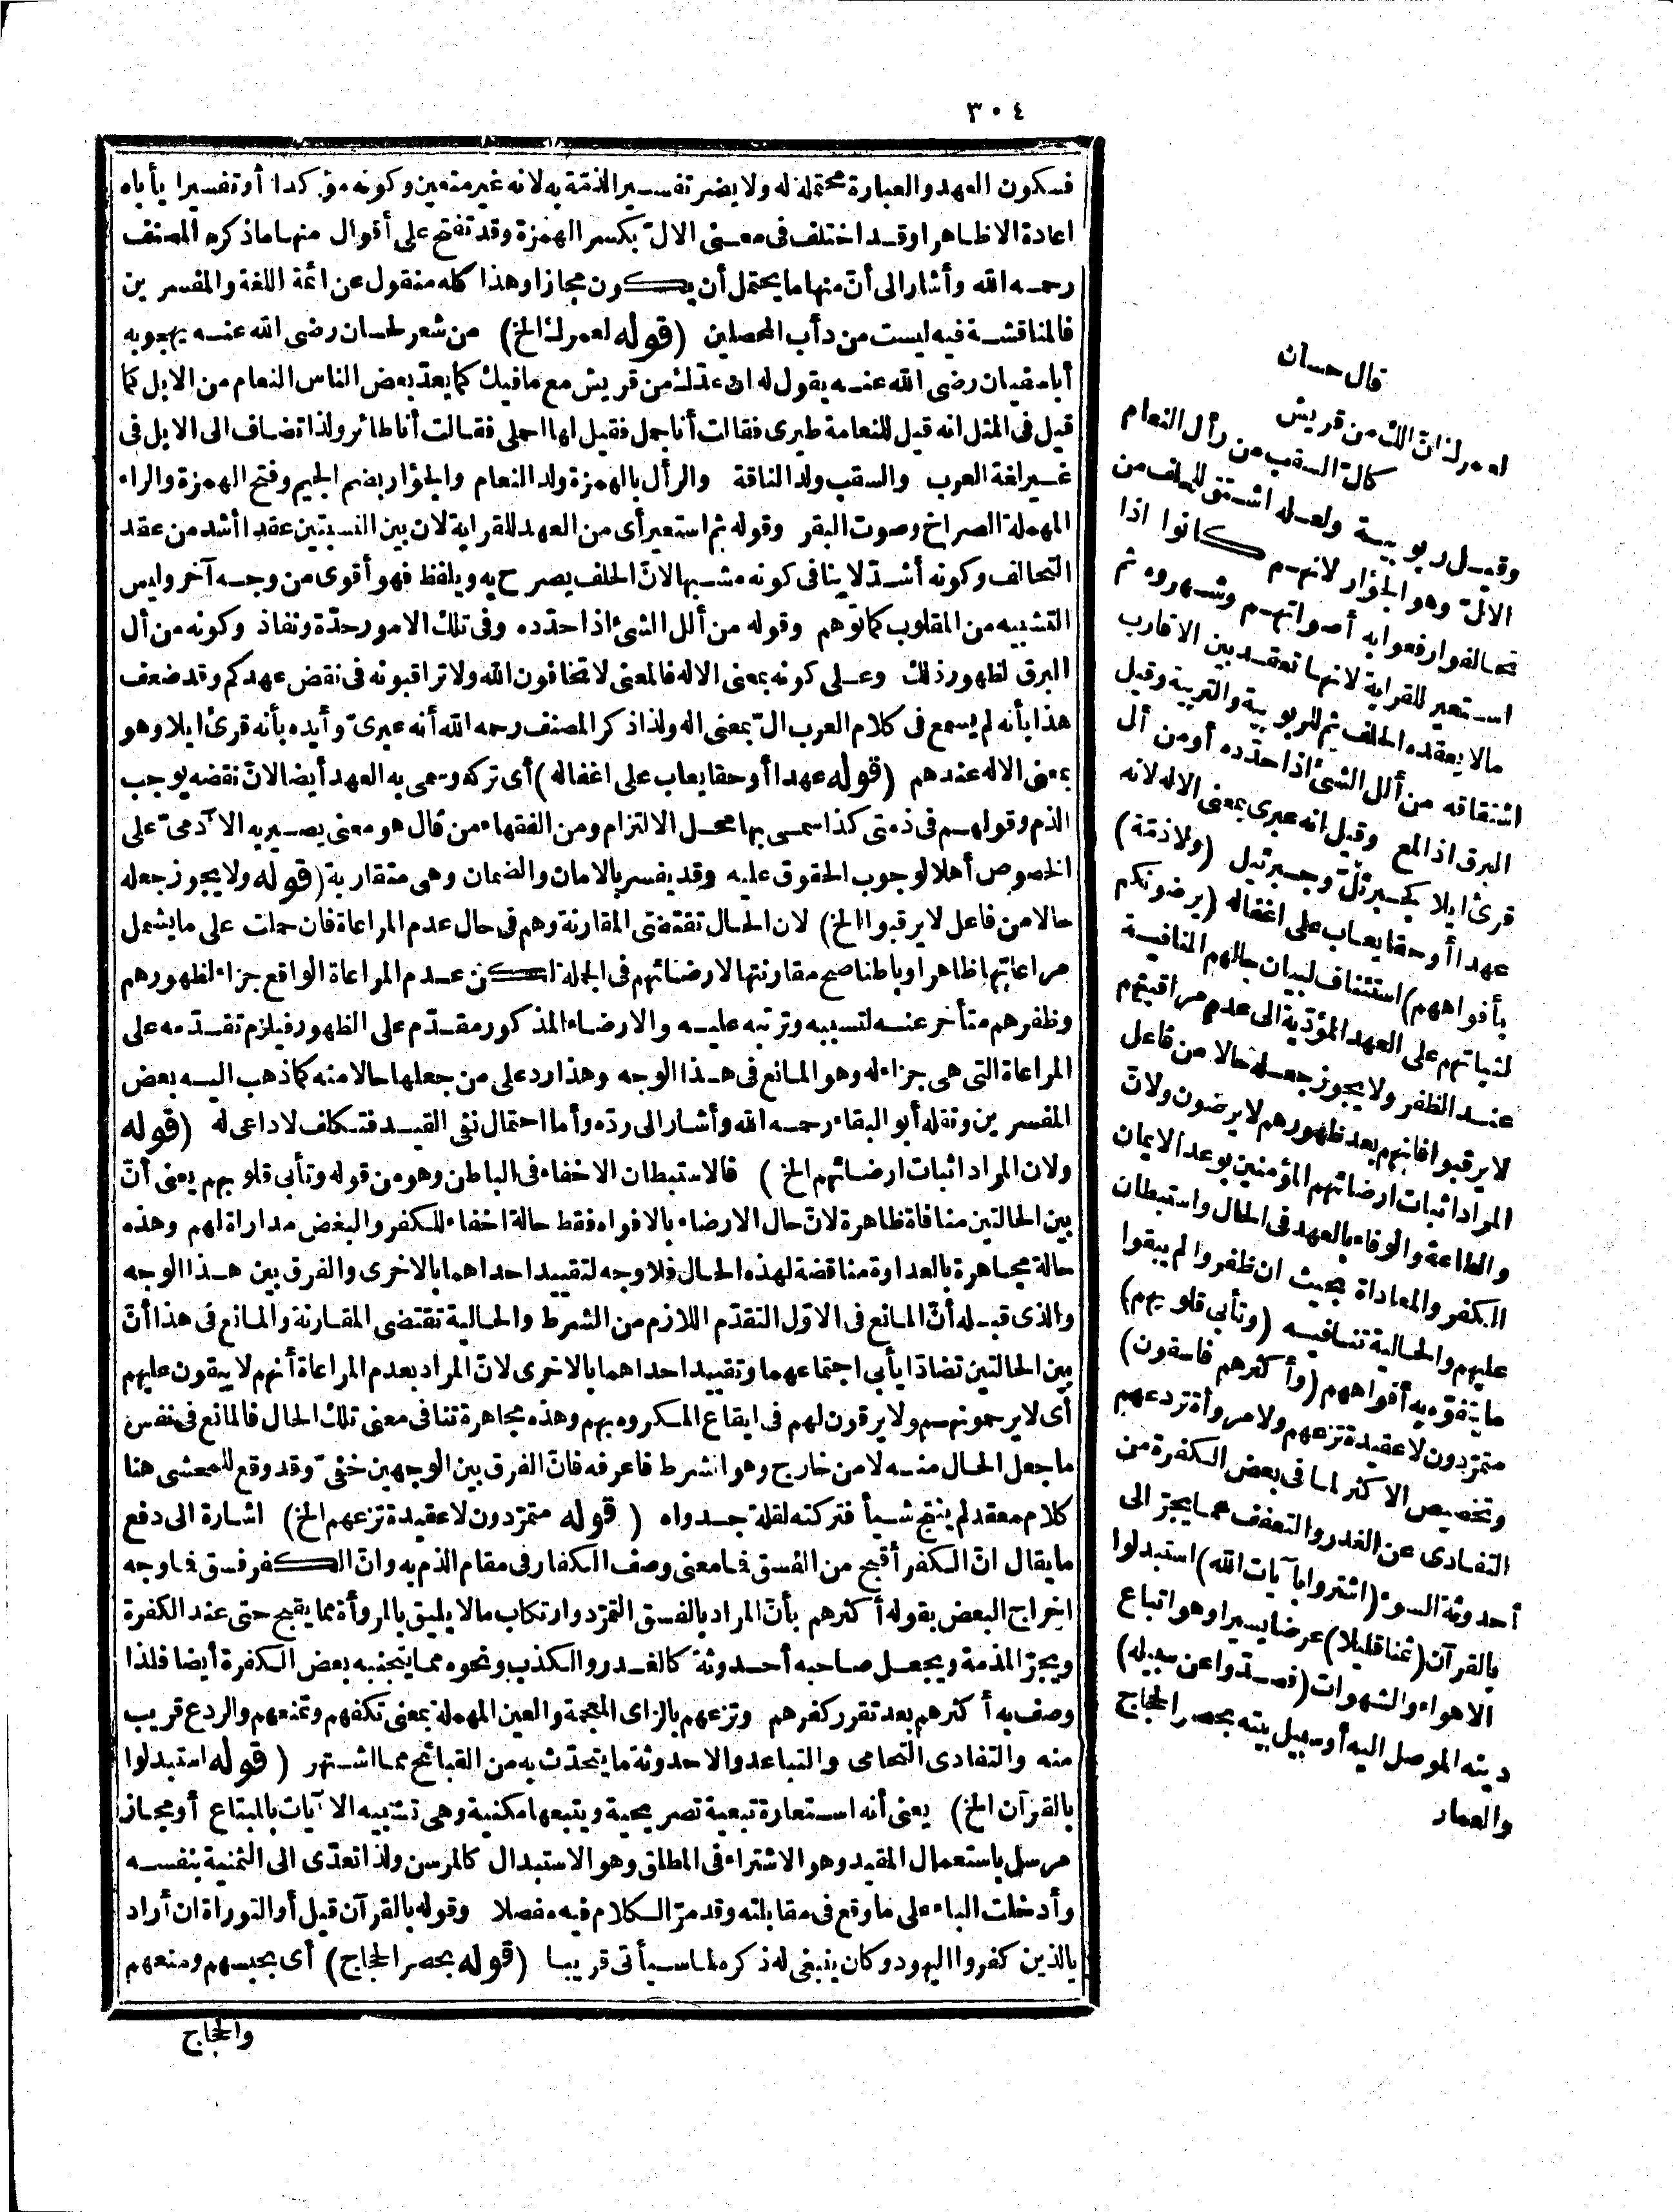 ٣٠٤
فسكون العهد والعبارة محتملة له ولا يضر تفسير الذمّة به لانه غير متعين وكونه مؤكدا أو تفسيرا يأباه
اعادة لا ظاهرا وقد اختلف فى معنى الالّ بكسر الهمزة وقد تفتح على أقوال منها ما ذكره المصنف
رحمه الله وأشار الى أنّ منها ما يحتمل أن يكون مجازا وهذا كله منقول عن ائمة اللغة والمفسرين
فالمناقشة فيه ليست من دأب المحصلين (قوله لعمرك الخ) من شعر لحسان رضى الله عنه يهجو به
أبا سفيان رضى الله عنه يقول له ان عدّك من قريش مع ما فيك كما يعدّ بعض الناس النعام من الابل كما
قيل فى المثل انه قيل للنعامة طيرى فقالت أنا جمل فقيل لها احملى فقالت أنا طائر ولذا تضاف الى الابل فى
غير لغة العرب والسقب ولد الناقة والرأل بالهمزة ولد النعام والجؤار بضم الجيم وفتح الهمزة والراء
المهملة الصراخ وصوت البقر وقوله ثم استعير أى من العهد للقرابة لان بين النسبتين عقدا أشد من عقد
التحالف وكونه أشدّ لا ينافى كونه مشبها لانّ الحلف يصرح به ويلفظ فهو أقوى من وجه آخر وليس
التشبيه من المقلوب كما توهم وقوله من ألل الشئ اذا حدّده وفى تلك الامور حدّة ونفاذ وكونه من أل
البرق لظهور ذلك وعلى كونه بمعنى الاله فالمعنى لا تخافون الله ولا تراقبونه فى نقض عهدكم وقد ضعف
هذا بأنه لم يسمع فى كلام العرب الّ بمعنى اله ولذا ذكر المصنف رحمه الله أنه عبرىّ وأيده بأنه قرئ ايلا وهو
بمعنى الاله عندهم (قوله عهدا أو حقا يعاب على اغفاله) أى تركه وسمى به العهد أيضا لانّ نقضه يوجب
الذم وقولهم فى ذمتى كذا سمى بها محل الالتزام ومن الفقهاء من قال هو معنى يصير به الآدمىّ على
الخصوص أهلا لوجوب الحقوق عليه وقد يفسر بالامان والضمان وهى متقاربة (قوله ولا يجوز جعله
حالا من فاعل لا يرقبوا الخ) لان الحال تقتضى المقارنة وهم فى حال عدم المراعاة فان حملت على ما يشمل
مراعاتهم ظاهرا وباطنا صح مقارنتها لارضائهم فى الجملة لكن عدم المراعاة الواقع جزاء لظهورهم
وظفرهم متأخر عنه لتسببه وترتبه عليه والارضاء المذكور مقدّم على الظهور فيلزم تقدّمه على
المراعاة التى هى جزاء له وهو المانع فى هذا الوجه وهذا رد على من جعلها حالا منه كما ذهب اليه بعض
المفسرين ونقله أبو البقاء رحمه الله وأشار الى ردّه وأما احتمال نفى القيد فتكلف لا داعى له (قوله
ولان المراد اثبات ارضائهم الخ) فالاستبطان الاخفاء فى الباطن وهو من قوله وتأبى قلوبهم يعنى أنّ
بين الحالتين منافاة ظاهرة لانّ حال الارضاء بالافواه فقط حالة اخفاء للكفر والبغض مداراة لهم وهذه
حالة مجاهرة بالعداوة مناقضة لهذه الحال فلا وجه لتقييد احداهما بالاخرى والفرق بين هذا الوجه
والذى قبله أنّ المانع فى الاوّل التقدّم اللازم من الشرط والحالية تقتضى المقارنة والمانع فى هذا أنّ
بين الحالتين تضادّا يأبى اجتماعهما وتقييد احداهما بالاخرى لانّ المراد بعدم المراعاة أنهم لا يبقون عليهم
أى لا يرحمونهم ولا يرقون لهم فى ايقاع المكروه بهم وهذه مجاهرة تنافى معنى تلك الحال فالمانع فى نفس
ما جعل الحال منه لا من خارج وهو الشرط فاعرفه فانّ الفرق بين الوجهين خفىّ وقد وقع للمحشى هنا
كلام معقد لم ينتج شيأ فتركته لقلة جدواه (قوله متمرّدون لا عقيدة تزعهم الخ) اشارة الى دفع
ما يقال انّ الكفر أقبح من الفسق فما معنى وصف الكفار فى مقام الذم به وانّ الكفر فسق فما وجه
اخراج البعض بقوله أكثرهم بأنّ المراد بالفسق التمرّد وارتكاب ما لا يليق بالمروأة مما يقبح حتى عند الكفرة
ويجرّ المذمة ويجعل صاحبه أحدوثة كالغدر والكذب ونحوه مما يتجنبه بعض الكفرة أيضا فلذا
وصف به أكثرهم بعد تقرر كفرهم وتزعهم بالزاى المعجمة والعين المهملة بمعنى تكفهم وتمنعهم والردع قريب
منه والتفادى التحامى والتباعد والاحدوثة ما يتحدّث به من القبائح مما اشتهر (قوله استبدلوا
بالقرآن الخ) يعنى أنه استعارة تبعية تصريحية ويتبعها مكنية وهى تشبيه الآيات بالمبتاع أو مجاز
مرسل باستعمال المقيد وهو الاشتراء فى المطلق وهو الاستبدال كالمرسن ولذا تعدّى الى الثمنية بنفسه
وأدخلت الباء على ما وقع فى مقابلته وقد مرّ الكلام فيه مفصلا وقوله بالقرآن قيل أو التوراة ان أراد
بالذين كفروا اليهود وكان ينبغى له ذكره لما سيأتى قريبا (قوله بحصر الحجاج) أى بحبسهم ومنعهم
والحجاج
قال حسان
لعمرك انّ الك من قريش
كالّ السقب من رأل النعام
وقيل ربوبية ولعله اشتق للحلف من
الالّ وهو الجؤار لانهم كانوا اذا
تحالفوا رفعوا به أصواتهم وشهروه ثم
استعير للقرابة لانها تعقد بين الاقارب
ما لا يعقده الحلف ثم للربوبية والتربية وقيل
اشتقاقه من ألل الشئ اذا حدّده أو من أل
البرق اذا لمع وقيل انه عبرى بمعنى الاله لانه
قرئ ايلا كجبرئلّ وجبرئيل (ولا ذمّة)
عهدا أو حقا يعاب على اغفاله (يرضونكم
بأفواههم) استئناف لبيان حالهم المنافية
لثباتهم على العهد المؤدّية الى عدم مراقبتهم
عند الظفر ولا يجوز جعله حالا من فاعل
لا يرقبوا فانهم بعد ظهورهم لا يرضون ولانّ
المراد اثبات ارضائهم المؤمنين بوعد الايمان
والطاعة والوفاء بالعهد فى الحال واستبطان
الكفر والمعاداة بحيث ان ظفروا لم يبقوا
عليهم والحالية تنافيه (وتأبى قلوبهم)
ما يتفوّه به أفواههم (وأكثرهم فاسقون)
متمرّدون لا عقيدة تزعهم ولا مروأة تردعهم
وتخصيص الاكثر لما فى بعض الكفرة من
التفادى عن الغدر والتعفف عما يجرّ الى
أحدوثة السوء (اشتروا بآيات الله) استبدلوا
بالقرآن (ثمنا قليلا) عرضا يسيرا وهو اتباع
الاهواء والشهوات (فصدّوا عن سبيله)
دينه الموصل اليه أو سبيل بيته بحصر الحجاج
والعمار